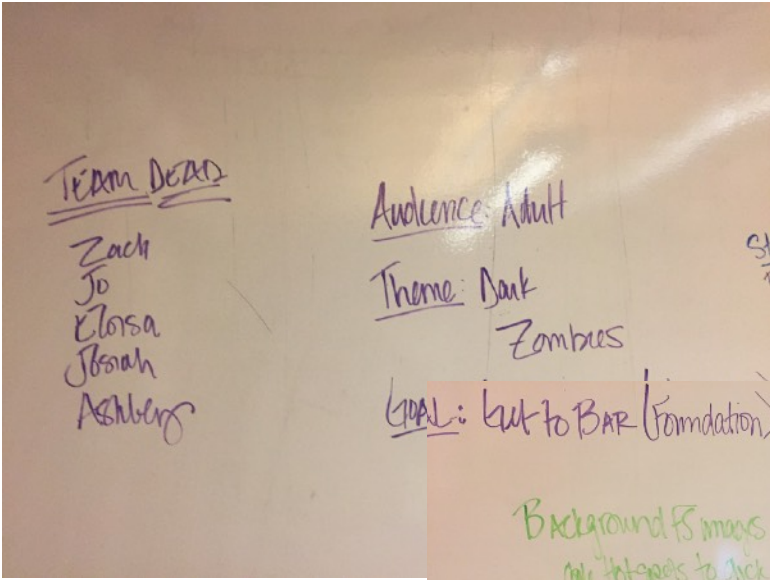 TEAM DEAD
Zach
Jo
Eloisa
Josiah
Ashberg
Audience: Adult
Theme: Dark
Zombies
GOAL: Get to BAR (Foundation)
Background FS images
Hotspots to click